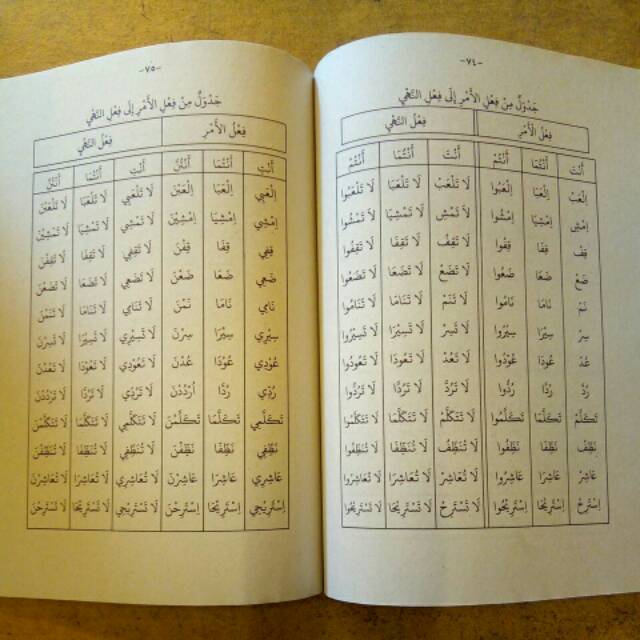 -٧٤-
جَدْوَلٌ مِنْ فِعْلِ الأَمْرِ إِلَى فِعْلِ النَّهْيِ
فِعْلُ الأَمْرِ فِعْلُ النَّهْيِ
أَنْتَ أَنْتُمَا أَنْتُمْ أَنْتَ أَنْتُمَا أَنْتُمْ
اِلْعَبْ اِلْعَبَا اِلْعَبُوا لَا تَلْعَبْ لَا تَلْعَبَا لَا تَلْعَبُوا
اِمْشِ اِمْشِيَا اِمْشُوا لَا تَمْشِ لَا تَمْشِيَا لَا تَمْشُوا
قِفْ قِفَا قِفُوا لَا تَقِفْ لَا تَقِفَا لَا تَقِفُوا
ضَعْ ضَعَا ضَعُوا لَا تَضَعْ لَا تَضَعَا لَا تَضَعُوا
نَمْ نَامَا نَامُوا لَا تَنَمْ لَا تَنَامَا لَا تَنَامُوا
سِرْ سِيْرَا سِيْرُوا لَا تَسِرْ لَا تَسِيْرَا لَا تَسِيْرُوا
عُدْ عُوْدَا عُوْدُوا لَا تَعُدْ لَا تَعُوْدَا لَا تَعُوْدُوا
رُدَّ رُدَّا رُدُّوا لَا تَرُدَّ لَا تَرُدَّا لَا تَرُدُّوا
تَكَلَّمْ تَكَلَّمَا تَكَلَّمُوا لَا تَتَكَلَّمْ لَا تَتَكَلَّمَا لَا تَتَكَلَّمُوا
نَظِّفْ نَظِّفَا نَظِّفُوا لَا تُنَظِّفْ لَا تُنَظِّفَا لَا تُنَظِّفُوا
عَاشِرْ عَاشِرَا عَاشِرُوا لَا تُعَاشِرْ لَا تُعَاشِرَا لَا تُعَاشِرُوا
اِسْتَرِحْ اِسْتَرِيْحَا اِسْتَرِيْحُوا لَا تَسْتَرِحْ لَا تَسْتَرِيْحَا لَا تَسْتَرِيْحُوا
-٧٥-
جَدْوَلٌ مِنْ فِعْلِ الأَمْرِ إِلَى فِعْلِ النَّهْيِ
فِعْلُ الأَمْرِ فِعْلُ النَّهْيِ
أَنْتِ أَنْتُمَا أَنْتُنَّ أَنْتِ أَنْتُمَا أَنْتُنَّ
اِلْعَبِي اِلْعَبَا اِلْعَبْنَ لَا تَلْعَبِي لَا تَلْعَبَا لَا تَلْعَبْنَ
اِمْشِي اِمْشِيَا اِمْشِيْنَ لَا تَمْشِي لَا تَمْشِيَا لَا تَمْشِيْنَ
قِفِي قِفَا قِفْنَ لَا تَقِفِي لَا تَقِفَا لَا تَقِفْنَ
ضَعِي ضَعَا ضَعْنَ لَا تَضَعِي لَا تَضَعَا لَا تَضَعْنَ
نَامِي نَامَا نَمْنَ لَا تَنَامِي لَا تَنَامَا لَا تَنَمْنَ
سِيْرِي سِيْرَا سِرْنَ لَا تَسِيْرِي لَا تَسِيْرَا لَا تَسِرْنَ
عُوْدِي عُوْدَا عُدْنَ لَا تَعُوْدِي لَا تَعُوْدَا لَا تَعُدْنَ
رُدِّي رُدَّا اُرْدُدْنَ لَا تَرُدِّي لَا تَرُدَّا لَا تَرْدُدْنَ
تَكَلَّمِي تَكَلَّمَا تَكَلَّمْنَ لَا تَتَكَلَّمِي لَا تَتَكَلَّمَا لَا تَتَكَلَّمْنَ
نَظِّفِي نَظِّفَا نَظِّفْنَ لَا تُنَظِّفِي لَا تُنَظِّفَا لَا تُنَظِّفْنَ
عَاشِرِي عَاشِرَا عَاشِرْنَ لَا تُعَاشِرِي لَا تُعَاشِرَا لَا تُعَاشِرْنَ
اِسْتَرِيْحِي اِسْتَرِيْحَا اِسْتَرِحْنَ لَا تَسْتَرِيْحِي لَا تَسْتَرِيْحَا لَا تَسْتَرِحْنَ